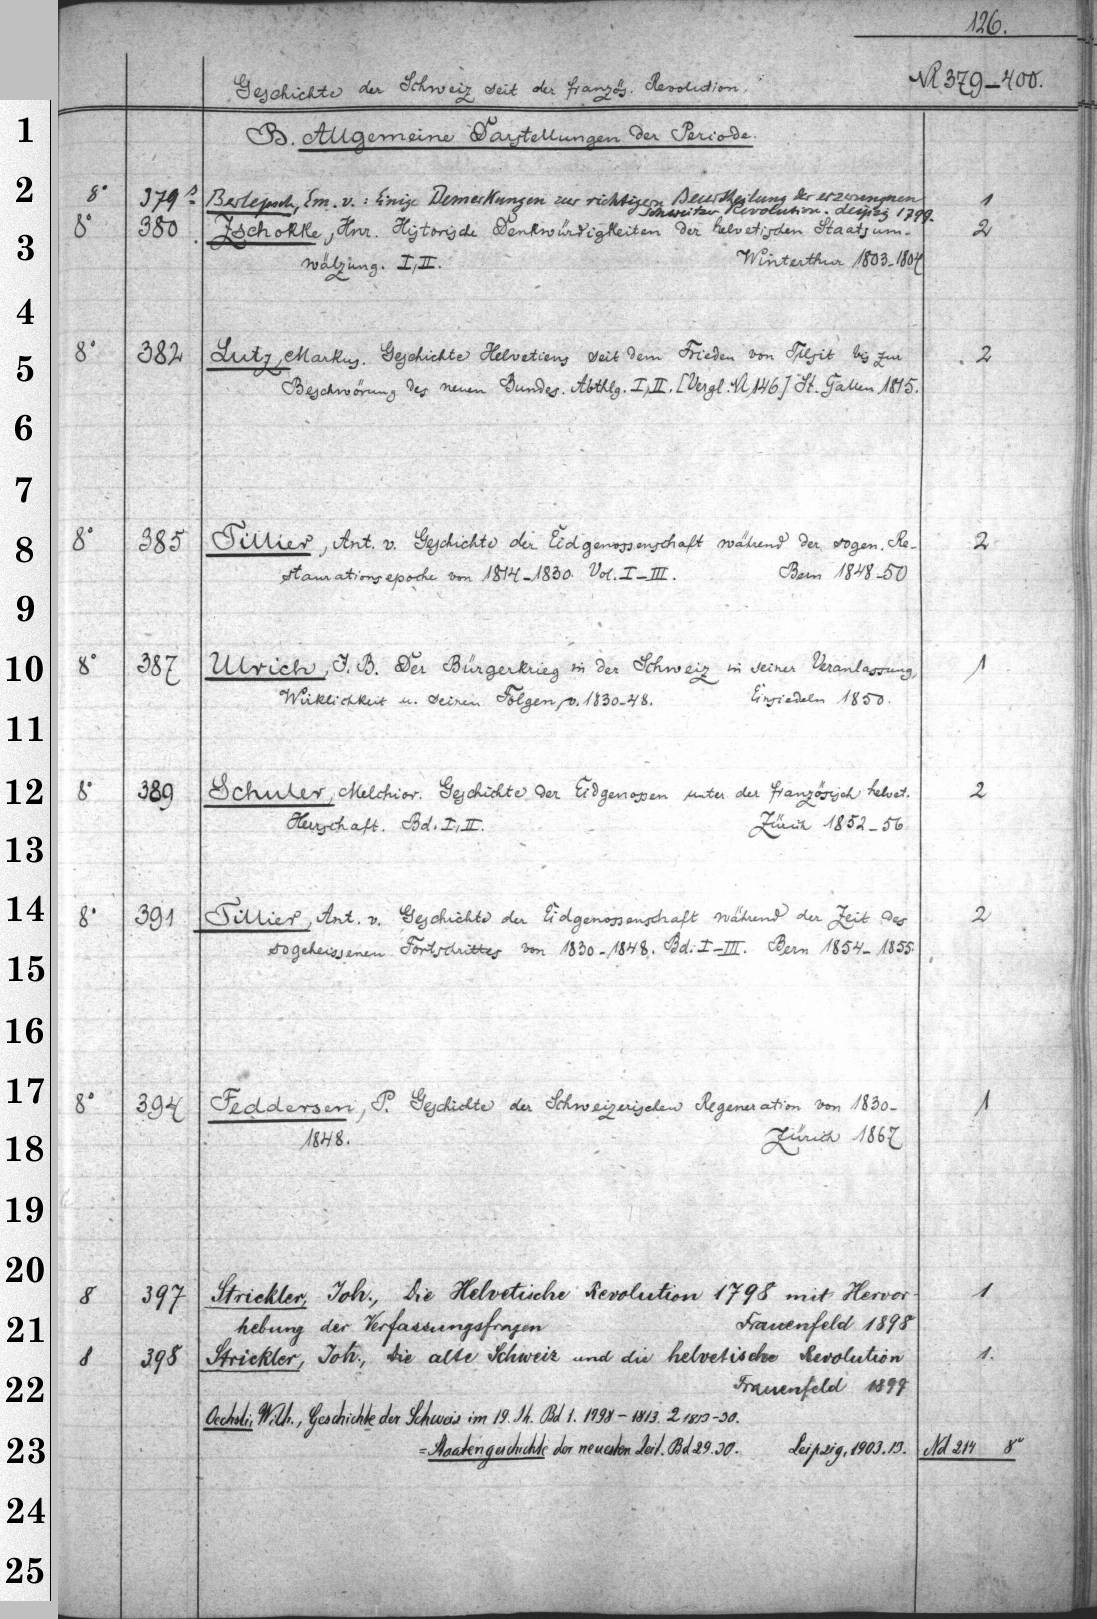 126.
Geschichte der Schweiz seit der französ. Revolution.
N 379–400.
1
B. Allgemeine Darstellungen der Periode.
2
8° 379 a Berlepsch, Em. v.: Einige Bemerkungen zur richtigern Beurtheilung der erzwungnen 1
Schweitzer Revolution. Leipzig 1799.
8° 380 Zschokke, Hnr. Historische Denkwürdigkeiten der helvetischen Staatsum- 2
3
wälzung. I, II. Winterthur 1803–1804
4
8° 382 Lutz, Markus. Geschichte Helvetiens seit dem Frieden von Tilsit bis zur 2
5
Beschwörung des neuen Bundes. Abthlg. I, II. [Vergl. N 146] St. Gallen 1815.
6
7
8° 385 Tillier, Ant. v. Geschichte der Eidgenossenschaft während der sogen. Re- 2
8
staurationsepoche von 1814–1830. Vol. I–III. Bern 1848–50
9
8° 387 Ulrich, J. B. Der Bürgerkrieg in der Schweiz in seiner Veranlassung, 1
10
Wirklichkeit u. seinen Folgen, v. 1830–48. Einsiedeln 1850.
11
8° 389 Schuler, Melchior. Geschichte der Eidgenossen unter der französisch helvet. 2
12
Herrschaft. Bd. I, II. Zürich 1852–56
13
8° 391 Tillier, Ant. v. Geschichte der Eidgenossenschaft während der Zeit des 2
14
sogeheissenen Fortschrittes von 1830–1848. Bd. I–III. Bern 1854–1855.
15
16
17
8° 394 Feddersen, P. Geschichte der Schweizerischen Regeneration von 1830– 1
1848. Zürich 1867
18
19
20
8 397 Strickler, Joh., Die Helvetische Revolution 1798 mit Hervor- 1
21
hebung der Verfassungsfragen Frauenfeld 1898
8 398 Strickler, Joh., Die alte Schweiz und die helvetische Revolution 1.
22
Frauenfeld 1899
Oechsli, Wilh., Geschichte der Schweiz im 19. Jh. Bd 1. 1798–1813. 2 1813–30.
23
= Staatengeschichte der neuesten Zeit. Bd 29. 30. Leipzig, 1903. 13. Nd 214 8°
24
25